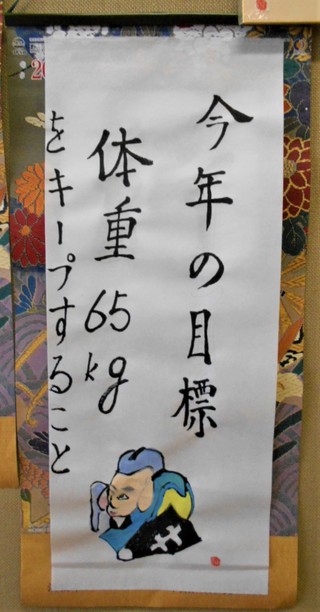 今年の目標
体重65kg
をキープすること